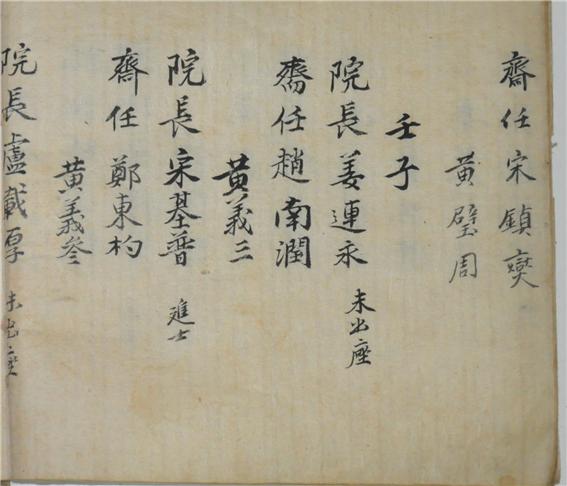 齋任 宋鎮奭
黃璧周
壬子
院長 姜連永 未出座
齋任 趙南潤
黃義三
院長 宋基普 進士
齋任 鄭東杓
黃義叅
院長 盧載厚 未出座